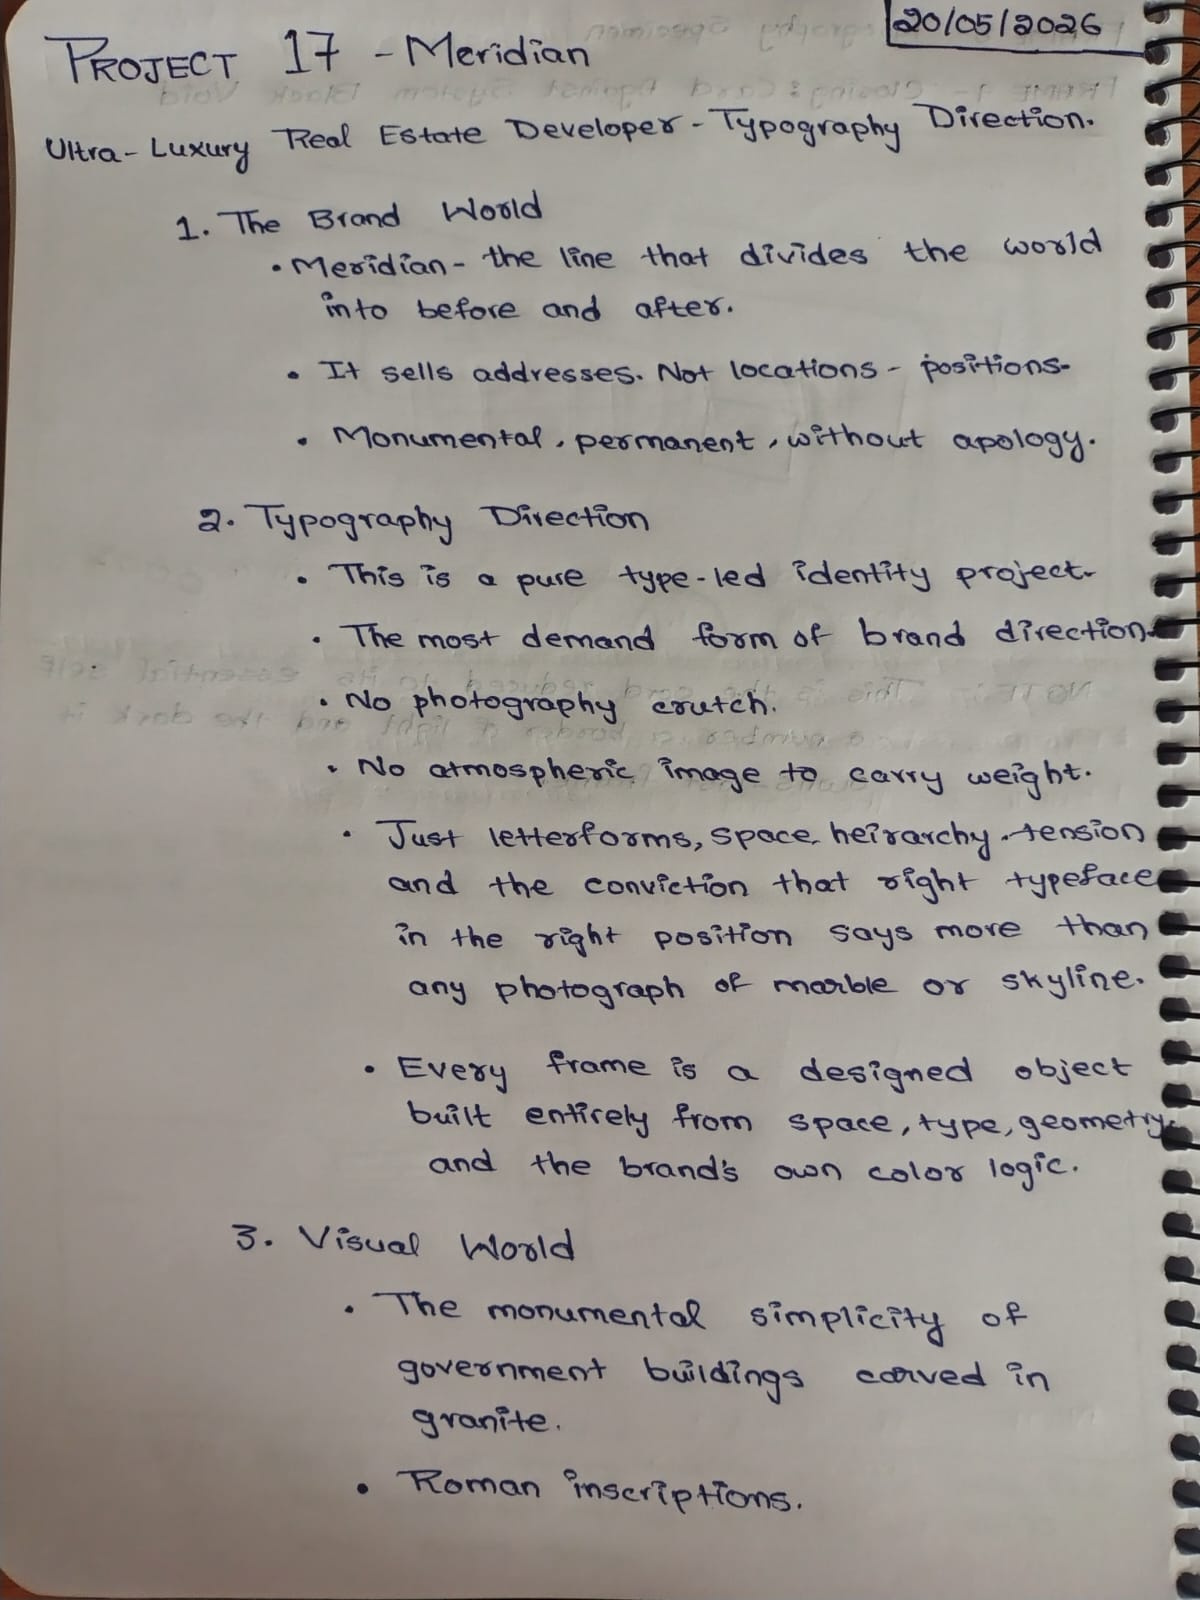 20/05/2026
PROJECT 17 - Meridian
Ultra-Luxury Real Estate Developer - Typography Direction.
1. The Brand World
• Meridian - the line that divides the world
into before and after.
• It sells addresses. Not locations - positions.
• Monumental, permanent, without apology.
2. Typography Direction
• This is a pure type-led identity project.
• The most demand form of brand direction.
• No photography crutch.
• No atmospheric image to carry weight.
• Just letterforms, space, heirarchy, tension
and the conviction that right typeface
in the right position says more than
any photograph of marble or skyline.
• Every frame is a designed object
built entirely from space, type, geometry,
and the brand's own color logic.
3. Visual World
• The monumental simplicity of
government buildings carved in
granite.
• Roman inscriptions.